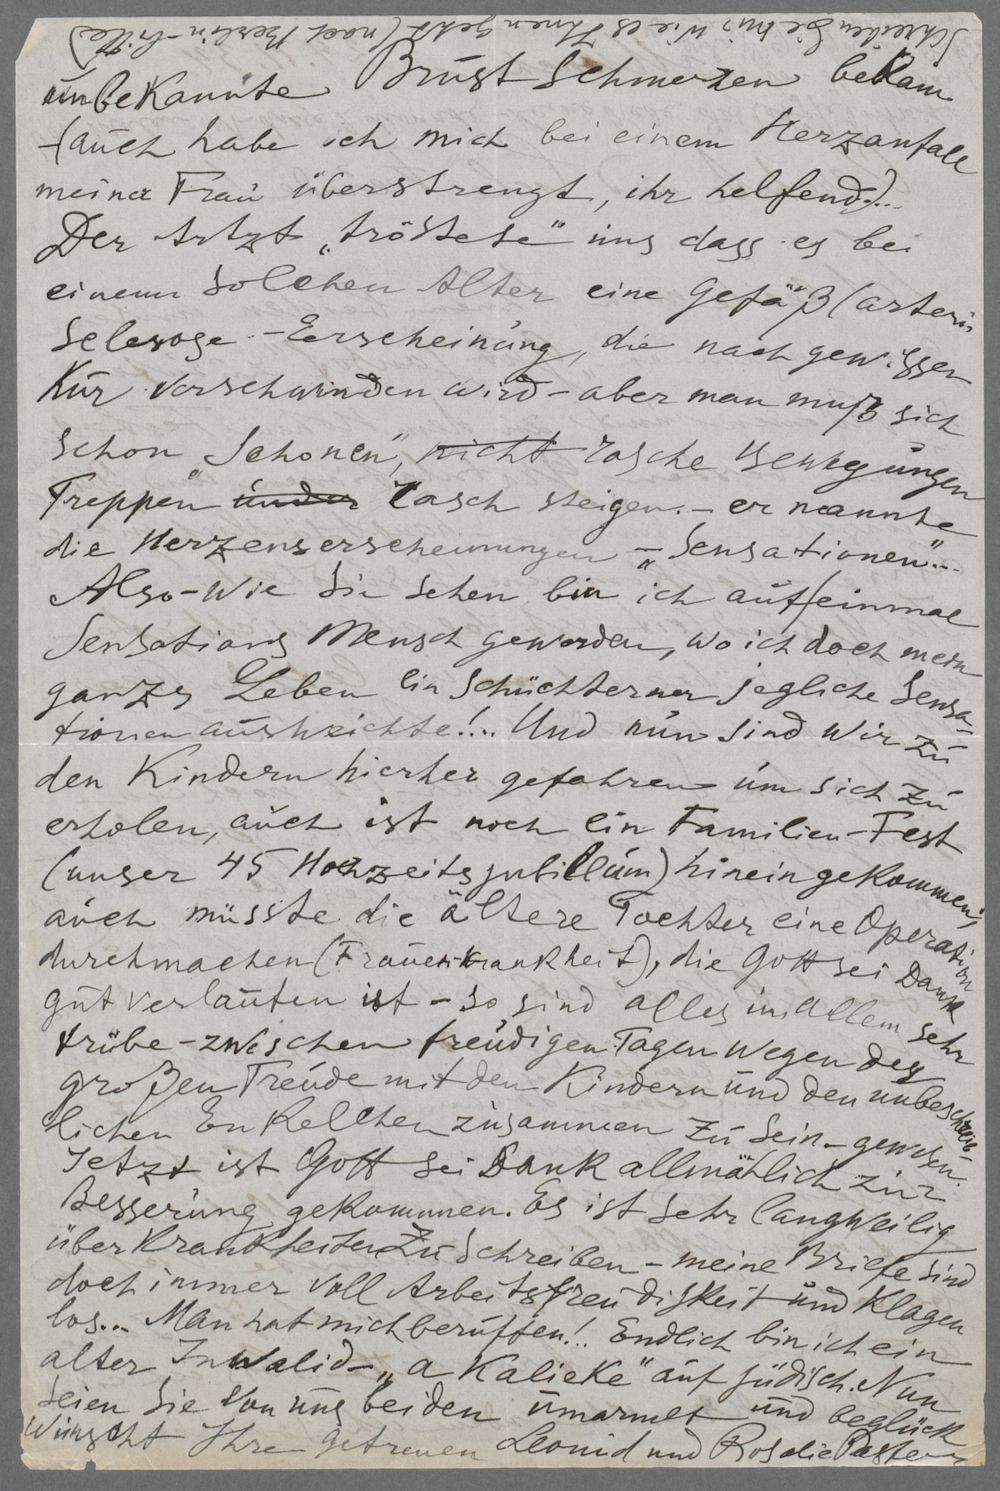 Schreiben Sie mir wie es Ihnen geht (nach Berlin-bitte)
unbekannte Brust Schmerzen bekam
(auch habe ich mich bei einem Herzanfall
meiner Frau überstrengt, ihr helfend)...
Der Artzt „tröstete" uns dass es bei
einem solchen Alter eine Gefäß (arterio
sclerose - Erscheinung, die nach gewisser
Kur verschwinden wird - aber man muß sich
schon „schonen", nicht rasche Bewegungen
Treppen rasch steigen. - er nannte
die Herzenserscheinungen - „Sensationen"...
Also - wie Sie sehen bin ich auf einmal
Sensations Mensch geworden, wo ich doch mein
ganzes Leben ein schüchterner jegliche Sensa-
tionen ausweichte!.. Und nun sind wir zu
den Kindern hierher gefahren um sich zu
erholen, auch ist noch ein Familien-Fest
(unser 45 Hochzeitsjubilläum) hineingekommen,
auch müsste die ältere Tochter eine Operation
durchmachen (Frauenkrankheit), die Gott sei Dank
gut verlaufen ist - so sind alles in allem sehr
trübe - zwischen freudigen Tagen wegen der
großen Freude mit den Kindern und den unbeschreib
lichen Enkelchen zusammen zu sein - gewesen.
Jetzt ist Gott sei Dank allmählich zur
Besserung gekommen. Es ist sehr langweilig
über Krankheiten zu schreiben - meine Briefe sind
doch immer voll Arbeitsfreudigkeit und Klagen
los... Man hat mich beruffen!.. Endlich bin ich ein
alter Inwalid - „a Kalieke" auf jüdisch. Nun
seien Sie von uns beiden umarmt und beglück
wünscht Ihre getreuen Leonid und Rosalie Pasternak